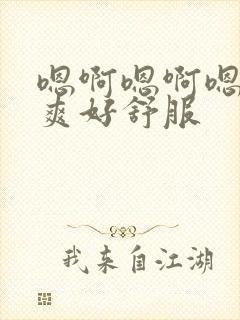 嗯啊嗯啊嗯
爽好舒服
我来自江湖